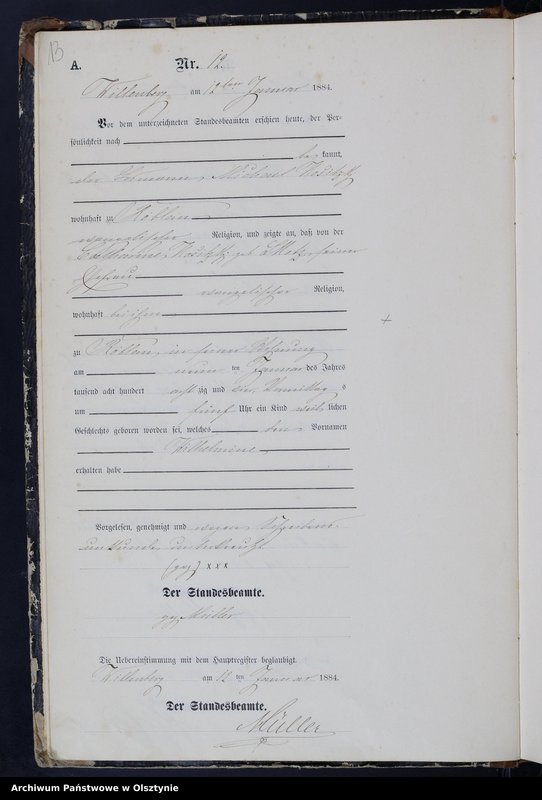 13
A. Nr. 12
Willenberg am 12ten Januar 1884.
Vor dem unterzeichneten Standesbeamten erschien heute, der Per-
sönlichkeit nach
be kannt,
der Michael
wohnhaft zu
evangelischer Religion, und zeigte an, daß von der
Catharine geb
evangelischer Religion,
wohnhaft bei ihm
zu in seiner Wohnung
am neun ten Januar des Jahres
tausend acht hundert acht zig und vier, Vormittag s
um fünf Uhr ein Kind weib lichen
Geschlechts geboren worden sei, welches den Vornamen
Wilhelmine
erhalten habe
Vorgelesen, genehmigt und wegen Schreibens-
unkunde unterkreuzt.
(gez) x x x
Der Standesbeamte.
gez Müller
Die Uebereinstimmung mit dem Hauptregister beglaubigt.
Willenberg am 12 ten Januar 1884.
Der Standesbeamte.
Müller
Archiwum Państwowe w Olsztynie